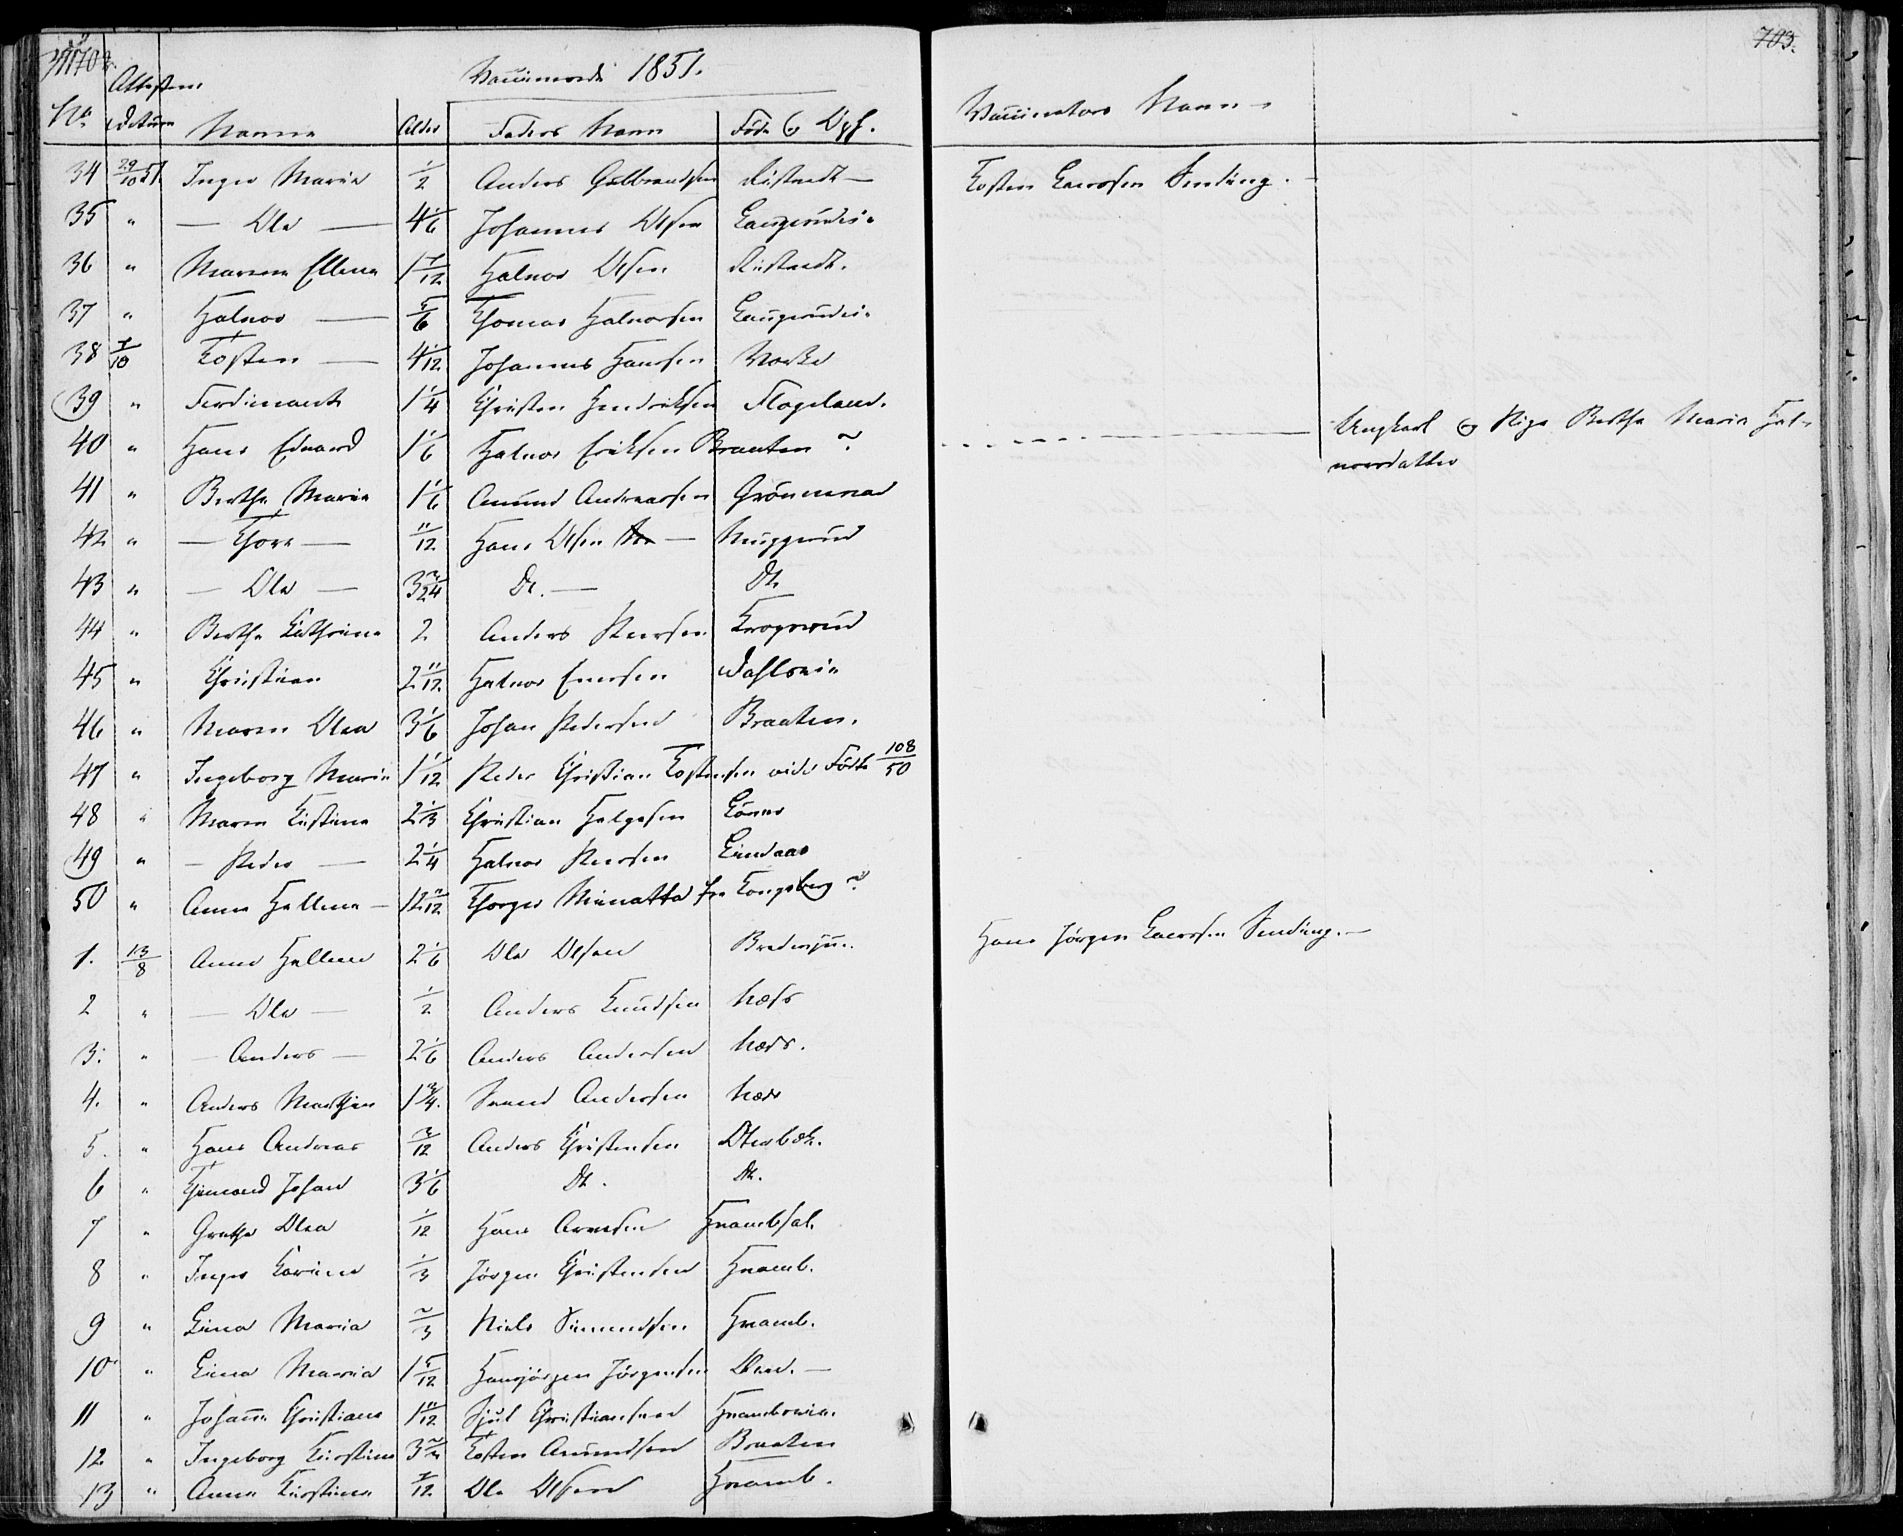 702.
Attestens Vaccinerede 1851.
No. Datum Navne Alder Faders Navn Føde og Opf.
34 29/10 51. Inger Maria 1/2 Anders Gulbrandsen Rustadt —
35 " — Ole — 4 1/6 Johannes Olsen Laugerudei.
36 " Maren Ellena 1 7/12 Halvor Olsen Rustadt.
37 " Halvor — 5/6 Thomas Halvorsen Laugerudei.
38 7/10 Tosten — 4 1/12 Johannes Hansen
39 " Ferdinant 1 1/4 Christen Hendriksen Flogeland.
40 " Hans Edvard 1 1/6 Halvor Eriksen Braaten ~
41 " Berthe Maria 1 1/6 Amund Andreassen
42 " — Thore — 11/12 Hans Olsen — Muggerud
43 " — Ole — 3 3/24 Do. — Do.
44 " Berthe Kathrine 2 Anders Peersen Krogerud
45 " Christian 2 11/12 Halvor Enersen
46 " Maren Olea 3 1/6 Johan Pedersen Braaten.
47 " Ingeborg Maria 1 1/12 Peder Christian Tostensen vide Føde 108/50
48 " Maren Kistine 2 1/3 Christian Helgesen
49 " — Peder — 2 1/4 Halvor Peersen Lindaas
50 " Anne Hellene — 12 11/12 Thorger fra Kongsberg ~
1. 13/8 Anne Hellene 2 1/6 Ole Olsen
2 " — Ole — 1/2 Anders Knudsen Næss
3. " — Anders — 2 1/6 Anders Andersen Næss.
4. " Anders Mathias 1 3/4. Svend Andersen Næss
5. " Hans Andreas 3/12 Anders Christensen Oterbek.
6 " Johan 3 1/6 Do. Do.
7 " Grethe Olea 1/12 Hans Arnesen
8 " Inger Karine 1/3 Jørgen Christensen Hvamb.
9 " Lina Maria 2/3 Niels Simundsen Hvamb.
10 " Lina Maria 1 5/12 Hansjørgen Jørgensen
11 " Johanne Christiane 1 11/12 Sjul Christiansen
12 " Ingeborg Kirstine 3 2/3 Tosten Amundsen Braaten
13 " Anne Kirstine 7/12 Ole Olsen Hvamb.
703.
Vaccinators Navn
Tosten Laersen Sending. —
Ungkarl og Pige Berthe Maria Hal-
vorsdatter
Hans Jørgen Laersen Sending. —